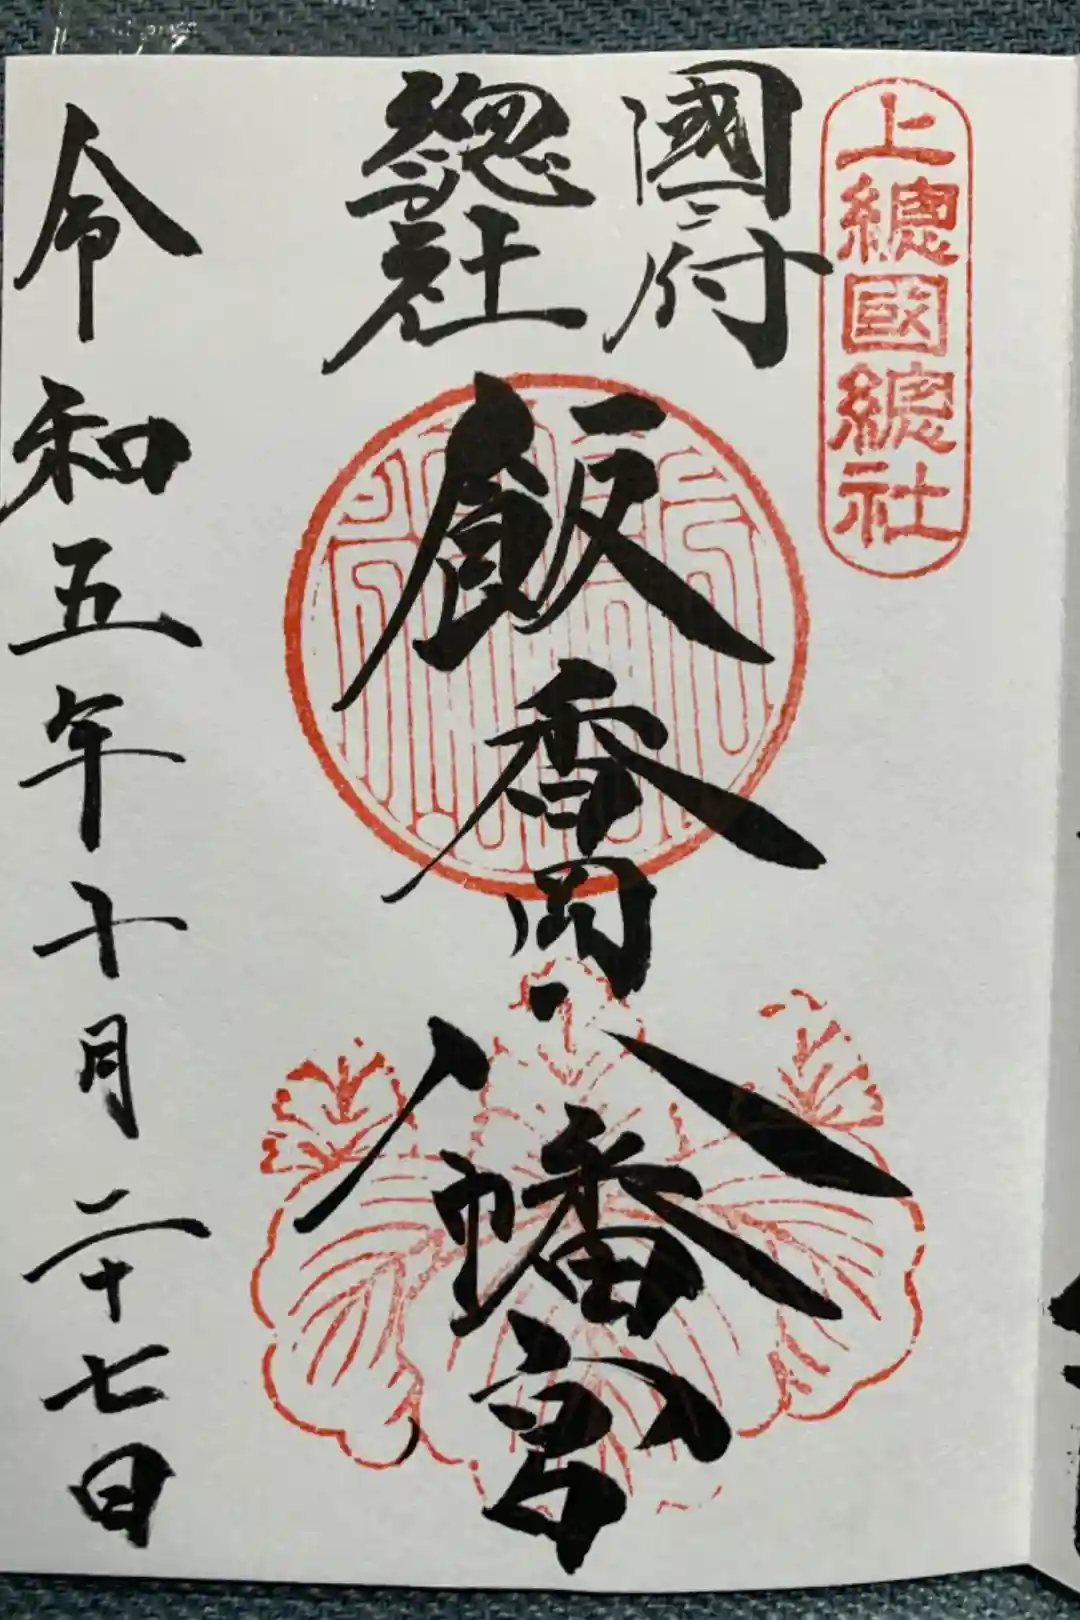 上總國總社
國府
總社
飯香岡八幡宮
令和五年十月二十七日